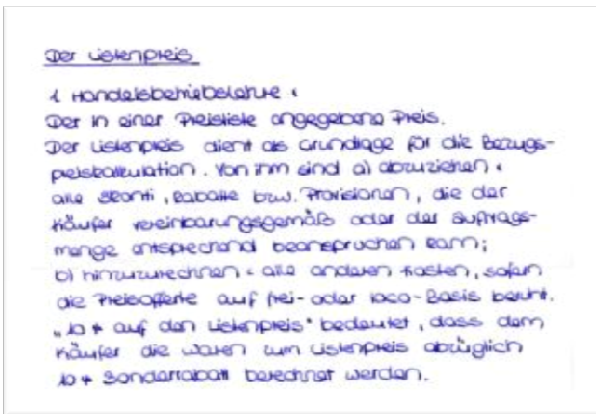 Der Listenpreis
1 Handelsbetriebslehre :
Der in einer Preisliste angegebene Preis.
Der Listenpreis dient als Grundlage für die Bezugs-
preiskalkulation. Von ihm sind a) abzuziehen :
alle Skonti, Rabatte bzw. Provisionen, die der
Käufer vereinbarungsgemäß oder der Auftrags-
menge entsprechend beanspruchen kann;
b) hinzuzurechnen : alle anderen Kosten, sofern
die Preisofferte auf frei- oder loco-Basis beruht.
„10 % auf den Listenpreis" bedeutet, dass dem
Käufer die Waren zum Listenpreis abzüglich
10 % Sonderrabatt berechnet werden.